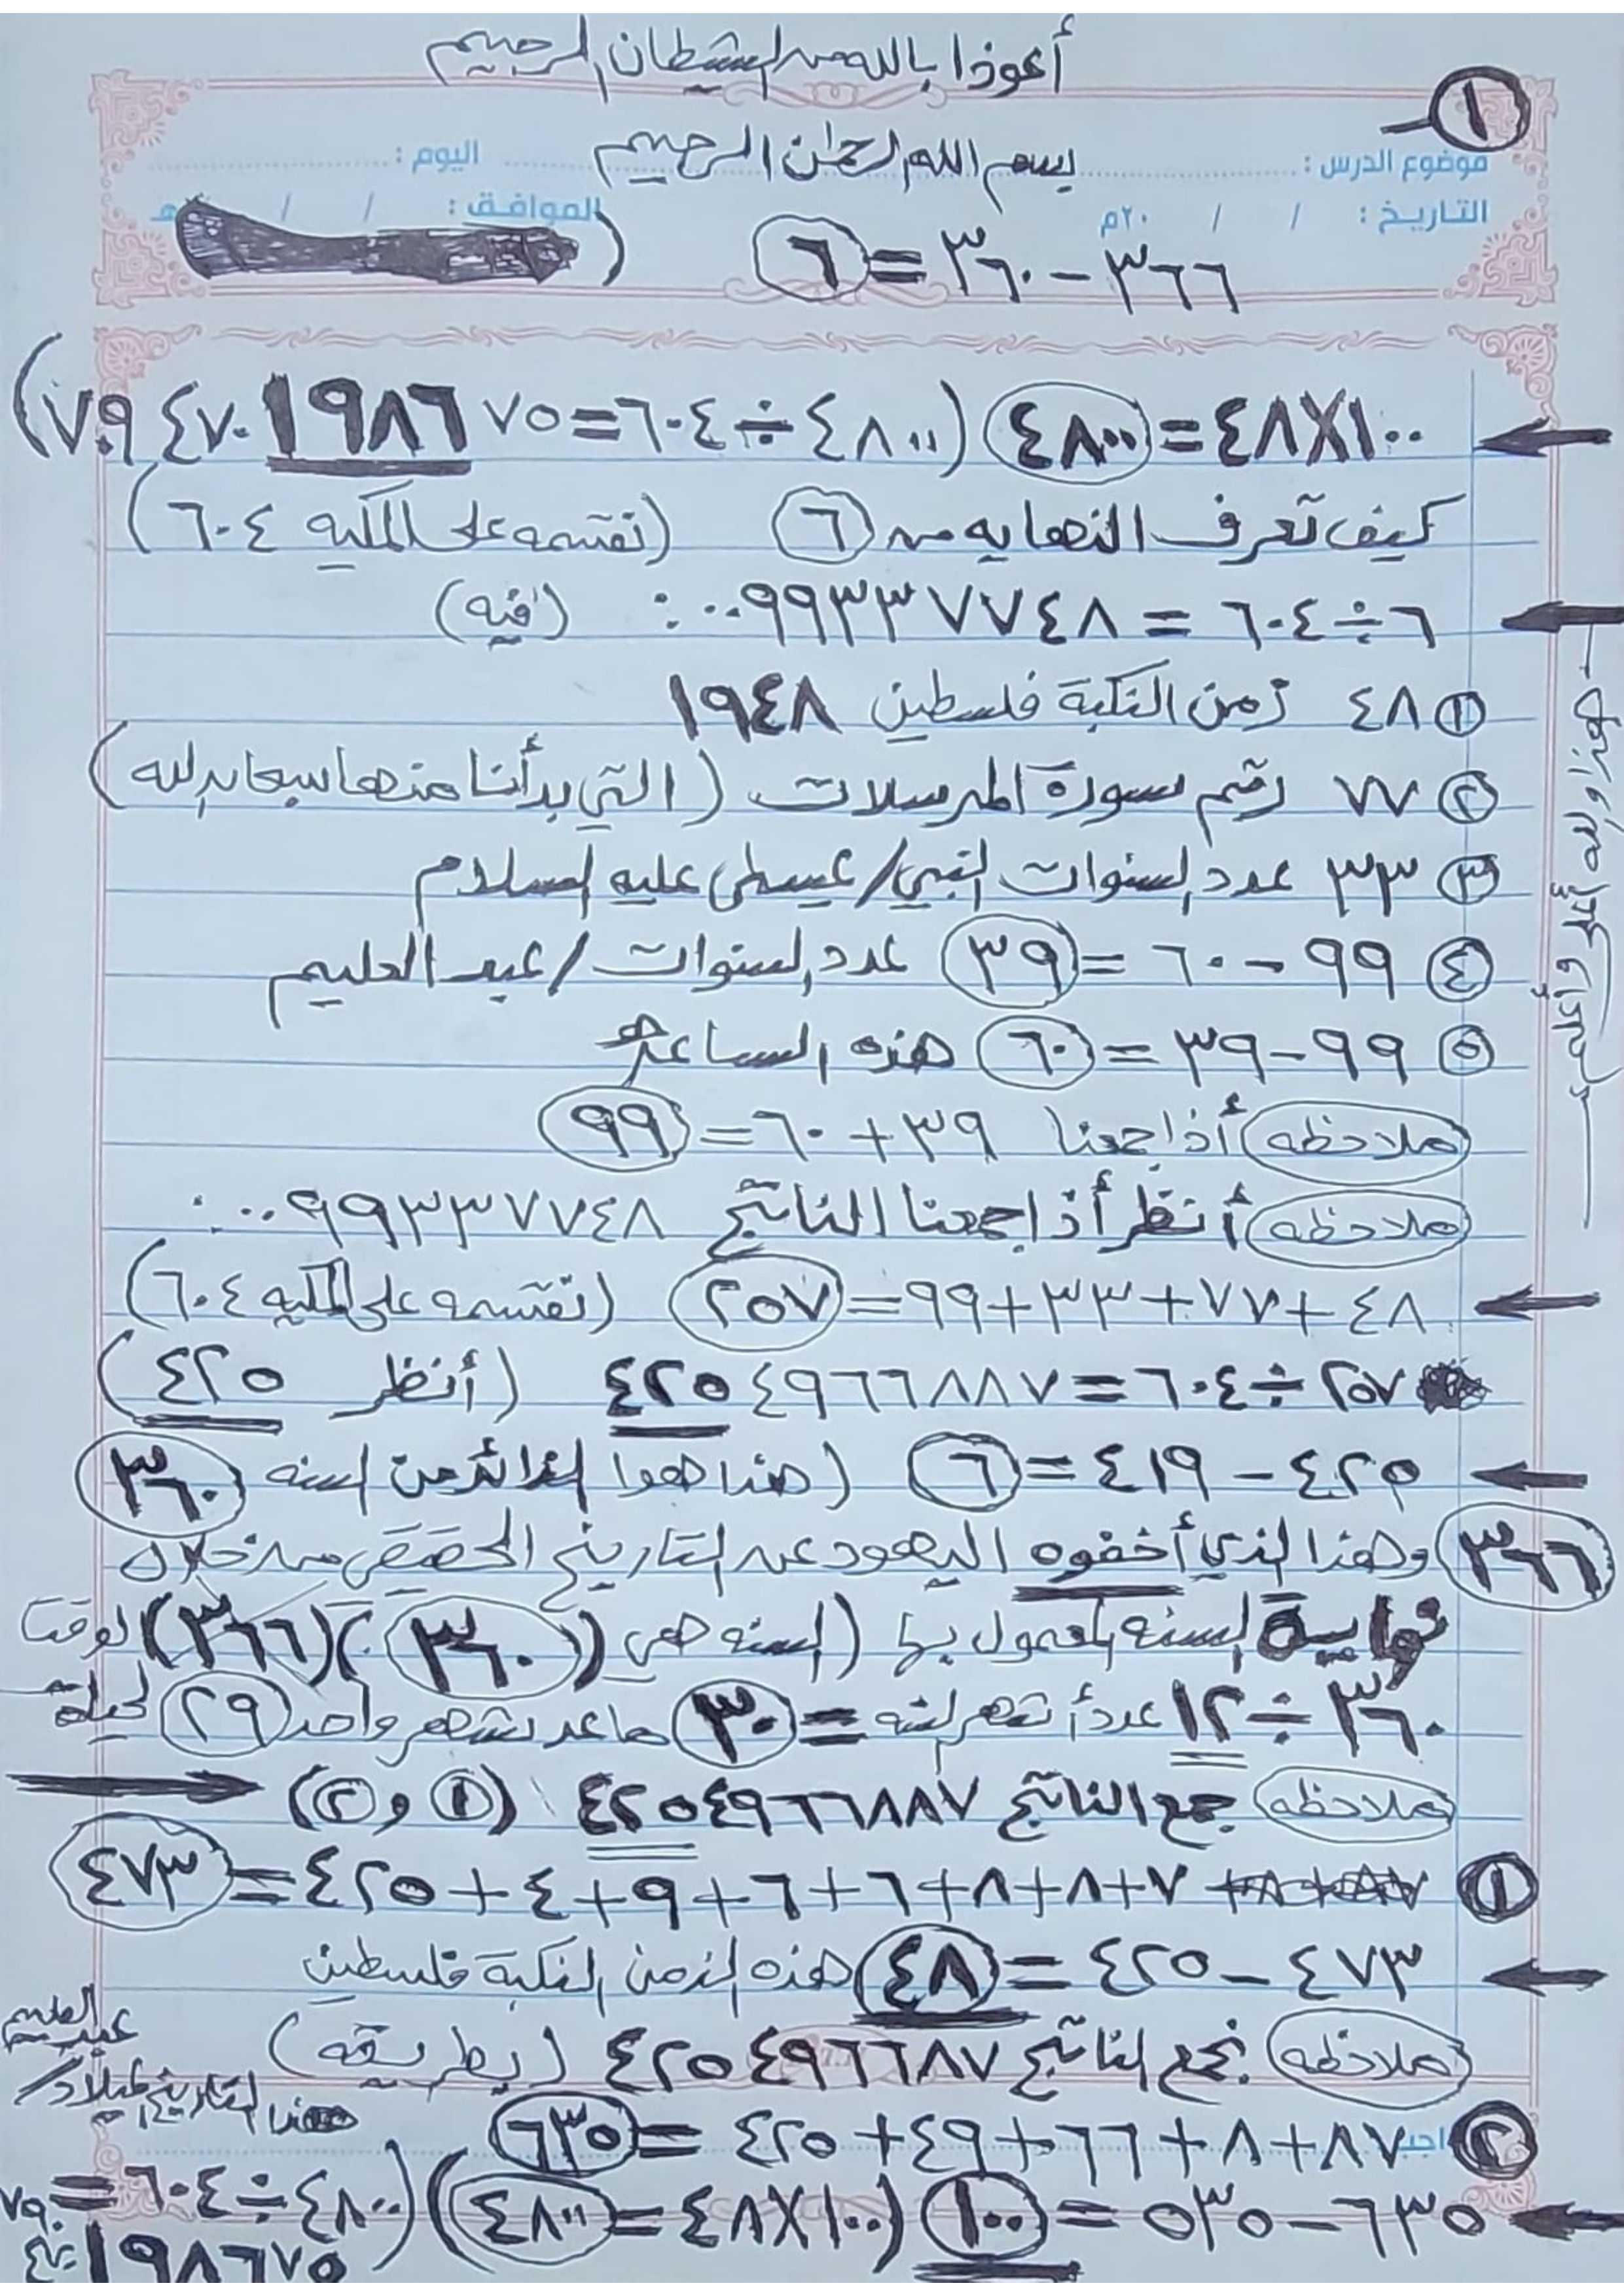 أعوذا بالله من الشطان الرجيم
١
بسم الله الرحمان الرحيم
موضوع الدرس : اليوم :
التاريخ : / / ٢٠م الموافق : / / هـ
٣٦٦ - ٣٦٠ = ٦ (
٤٨X١٠٠ = ٤٨٠٠ ( ٤٨٠٠ ÷ ٦٠٤ = ٧٫٩٤٧٠١٩٨٦٧٥ )
كيف تعرف النهايه من ٦ (تقسمه على المكيه ٦٠٤)
٦ ÷ ٦٠٤ = ٠٫٠٠٩٩٣٣٧٧٤٨ (فيه)
١ ٤٨ زمن النكبة فلسطين ١٩٤٨
٢ ٧٧ رقم سورة المرسلات ( التي بدأنا منها سبحان الله )
٣ ٣٣ عدد السنوات النبي/ عيسى عليه السلام
٤ ٩٩ - ٦٠ = ٣٩ عدد السنوات / عبد العليم
٥ ٩٩ - ٣٩ = ٦٠ هذه الساعة
ملاحظه أذا جمعنا ٣٩ + ٦٠ = ٩٩
ملاحظه أنظر أذا جمعنا الناتج ٠٫٠٠٩٩٣٣٧٧٤٨
٤٨ + ٧٧ + ٣٣ + ٩٩ = ٢٥٧ (تقسمه على المكيه ٦٠٤)
٢٥٧ ÷ ٦٠٤ = ٤٢٥٤٩٦٦٨٨٧ ( أنظر ٤٢٥ )
٤٢٥ - ٤١٩ = ٦ ( هذا هوا الزائد من السنه ٣٦٠
٣٦٦ وهذا الذي أخفوه اليهود عن التاريخ الحصص من خلال
نهاية السنه المعمول بها ( السنه هي (٣٦٠) (٣٦٦) لوقتنا
٣٦٠ ÷ ١٢ عدد أشهر السنه = ٣٠ ماعد شهر واحد ٢٩ ليلة
ملاحظه جمع الناتج ٤٢٥٤٩٦٦٨٨٧ (١ و ٢)
١ ٧ + ٨ + ٨ + ٦ + ٦ + ٩ + ٤ + ٤٢٥ = ٤٧٣
٤٧٣ - ٤٢٥ = ٤٨ هذه الزمن النكبة فلسطين
ملاحظه نجمع الناتج ٤٢٥٤٩٦٦٨٧ ( بطريقه )
هذا التاريخ ميلاد / عبد العليم
٢ ٨٧ + ٨ + ٦٦ + ٤٩ + ٤٢٥ = ٦٣٥
٦٣٥ - ٥٣٥ = ١٠٠ (٤٨X١٠٠ = ٤٨٠٠) (٤٨٠٠ ÷ ٦٠٤ =
١٩٨٦٧٥
هذا والله أعلى وأعلم